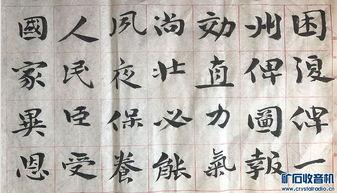 困復俾一
州俾圖報
効直力氣
尚壯必能
夙夜保養
人民臣受
國家異恩
矿石收音机
www.crystalradio.cn